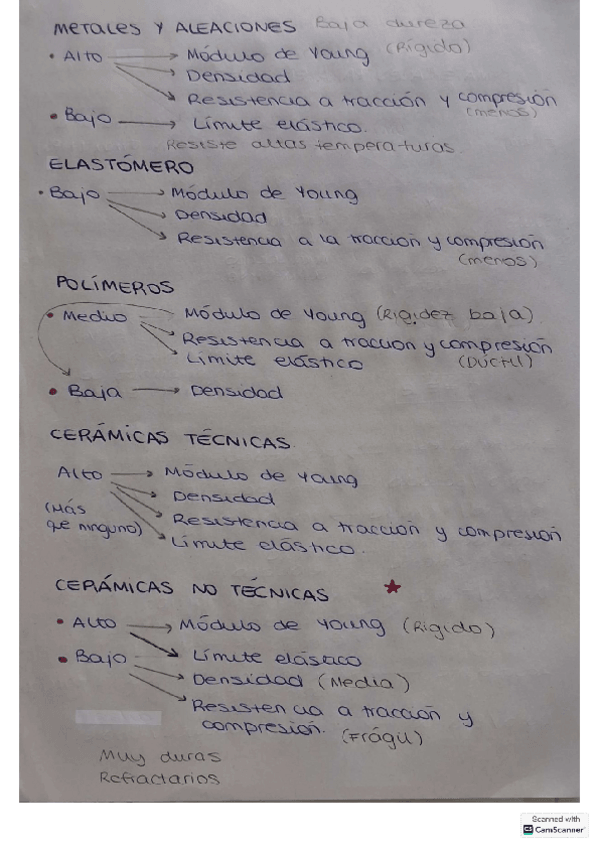 METALES Y ALEACIONES Baja dureza
• Alto → Módulo de Young (Rígido)
→ Densidad
→ Resistencia a tracción y compresión
(menos)
• Bajo → Límite elástico.
Resiste altas temperaturas.
ELASTÓMERO
• Bajo → Módulo de Young
→ Densidad
→ Resistencia a la tracción y compresión
(menos)
POLÍMEROS
• Medio Módulo de Young (Rigidez baja)
→ Resistencia a tracción y compresión
→ Límite elástico (Dúctil)
• Baja → Densidad
CERÁMICAS TÉCNICAS.
Alto → Módulo de Young
→ Densidad
(Más que ninguno) → Resistencia a tracción y compresión
→ Límite elástico.
CERÁMICAS NO TÉCNICAS ★
• Alto → Módulo de Young (Rígido)
→ Límite elástico
• Bajo → Densidad (Media)
→ Resistencia a tracción y
compresión. (Frágil)
Muy duras
Refractarios
Scanned with
CS CamScanner